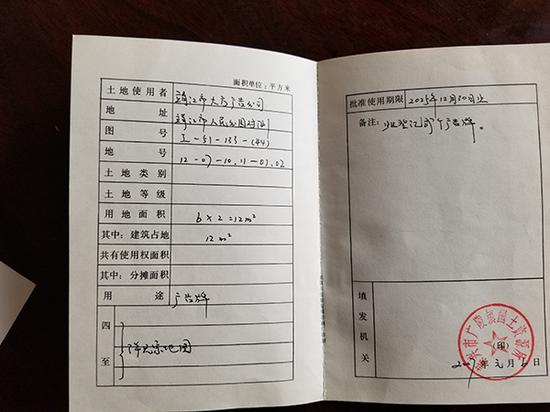 面积单位：平方米
土地使用者 市大方广告公司
地址 市人民公园对面
图号 I-51-133-(44)
地号 12-07-10.11-01.02
土地类别
土地等级
用地面积 6×2=12m²
其中：建筑占地 12m²
共有使用权面积
其中：分摊面积
用途 广告牌
四至 详见宗地图
批准使用期限 2025年12月30日止
备注： 登记 个广告牌。
填发机关
市广陵镇国土资源所
（印）
年元月 日